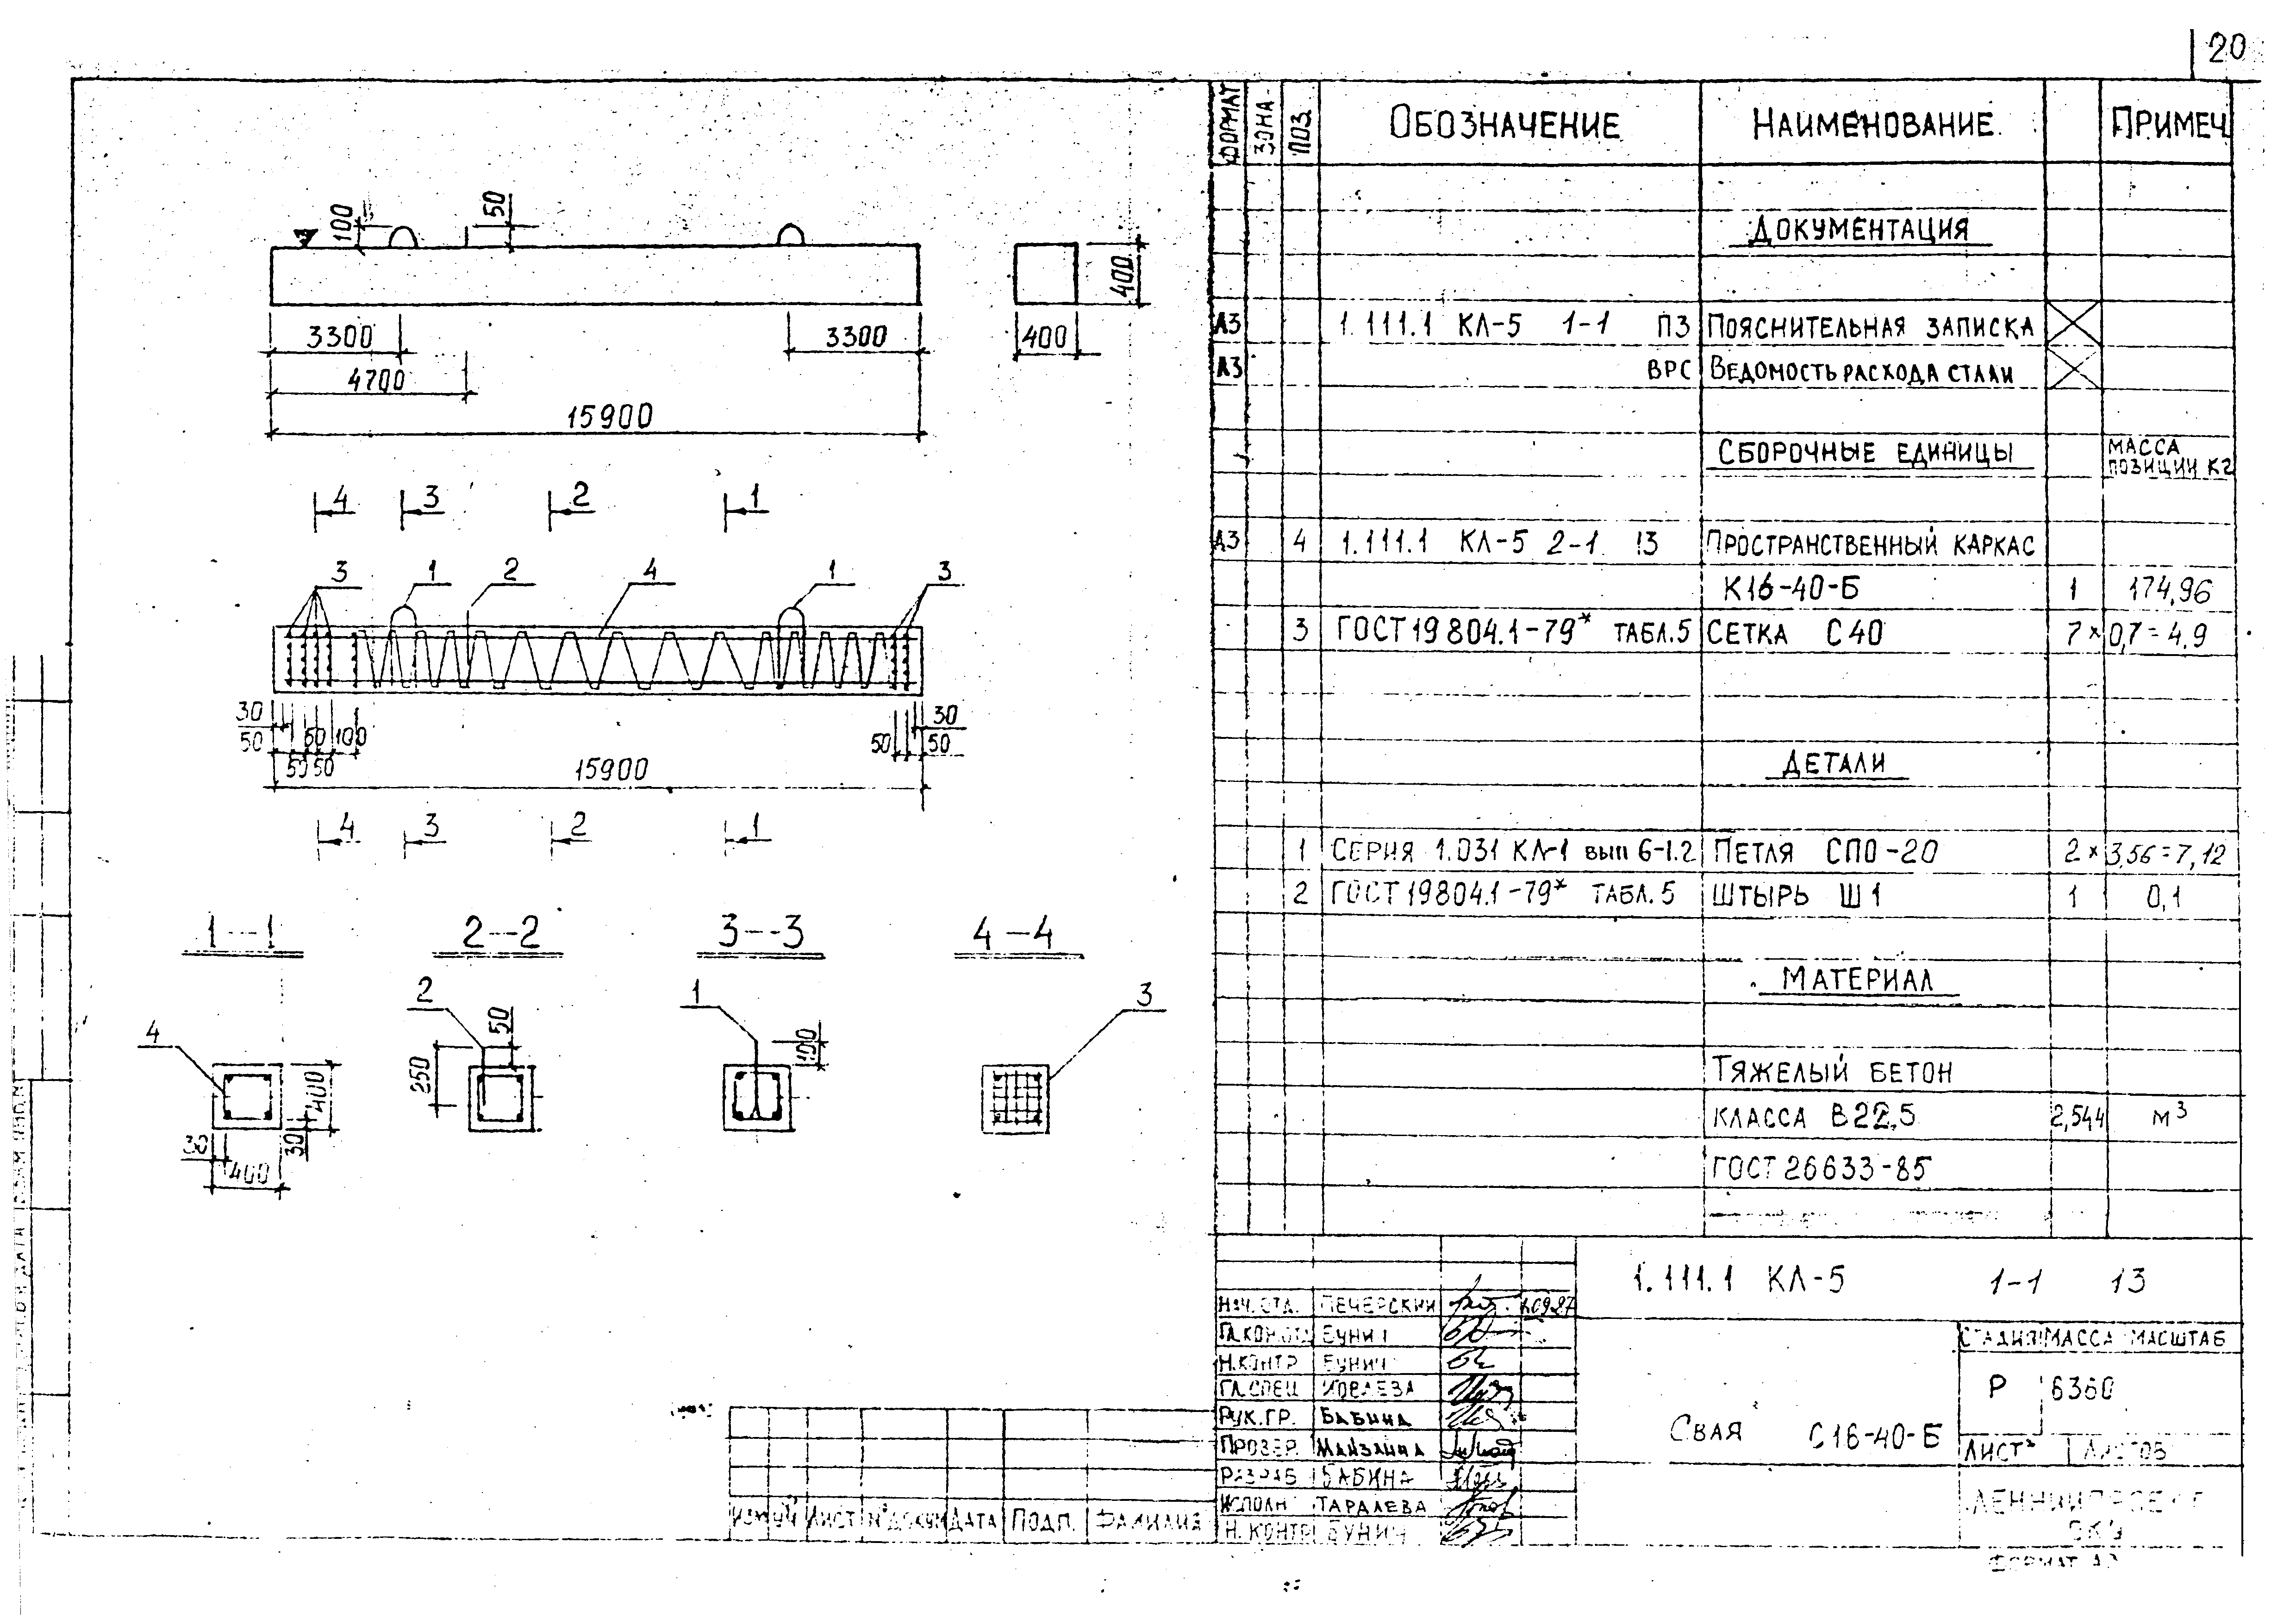 20
100
50
400
3300
3300
400
4700
15900
4 3 2 1
3 1 2 4 1 3
30 30
50 50 100 50 50
50 50
15900
4 3 2 1
1--1 2--2 3--3 4--4
2 1 3
4
50
250
100
400
30
30
400
ФОРМАТ ЗОНА ПОЗ. ОБОЗНАЧЕНИЕ НАИМЕНОВАНИЕ ПРИМЕЧ
ДОКУМЕНТАЦИЯ
А3 1.111.1 КЛ-5 1-1 ПЗ ПОЯСНИТЕЛЬНАЯ ЗАПИСКА
А3 ВРС ВЕДОМОСТЬ РАСХОДА СТАЛИ
СБОРОЧНЫЕ ЕДИНИЦЫ МАССА
ПОЗИЦИИ КГ
А3 4 1.111.1 КЛ-5 2-1 13 ПРОСТРАНСТВЕННЫЙ КАРКАС
К16-40-Б 1 174,96
3 ГОСТ 19804.1-79* ТАБЛ.5 СЕТКА С40 7 × 0,7 = 4.9
ДЕТАЛИ
1 СЕРИЯ 1.031 КЛ-1 ВЫП 6-1.2 ПЕТЛЯ СПО-20 2 × 3,56 = 7,12
2 ГОСТ 19804.1-79* ТАБЛ.5 ШТЫРЬ Ш1 1 0,1
МАТЕРИАЛ
ТЯЖЕЛЫЙ БЕТОН
КЛАССА В22,5 2,544 м³
ГОСТ 26633-85
1.111.1 КЛ-5 1-1 13
НАЧ.ОТД. ПЕЧЕРСКИЙ
ГЛ.КОН.ОТД БУНИЧ
Н.КОНТР БУНИЧ
ГЛ.СПЕЦ
РУК.ГР. БАБИНА
ПРОВЕР.
РАЗРАБ БАБИНА
ИСПОЛН ТАРАЛЕВА
Н.КОНТР БУНИЧ
СВАЯ С16-40-Б
СТАДИЯ МАССА МАСШТАБ
Р 6360
ЛИСТ ЛИСТОВ
ЛЕННИИПРОЕКТ
ОКЭ
ФОРМАТ А3
ИЗМ УЧ ЛИСТ № ДОКУМ ДАТА ПОДП. ФАМИЛИЯ